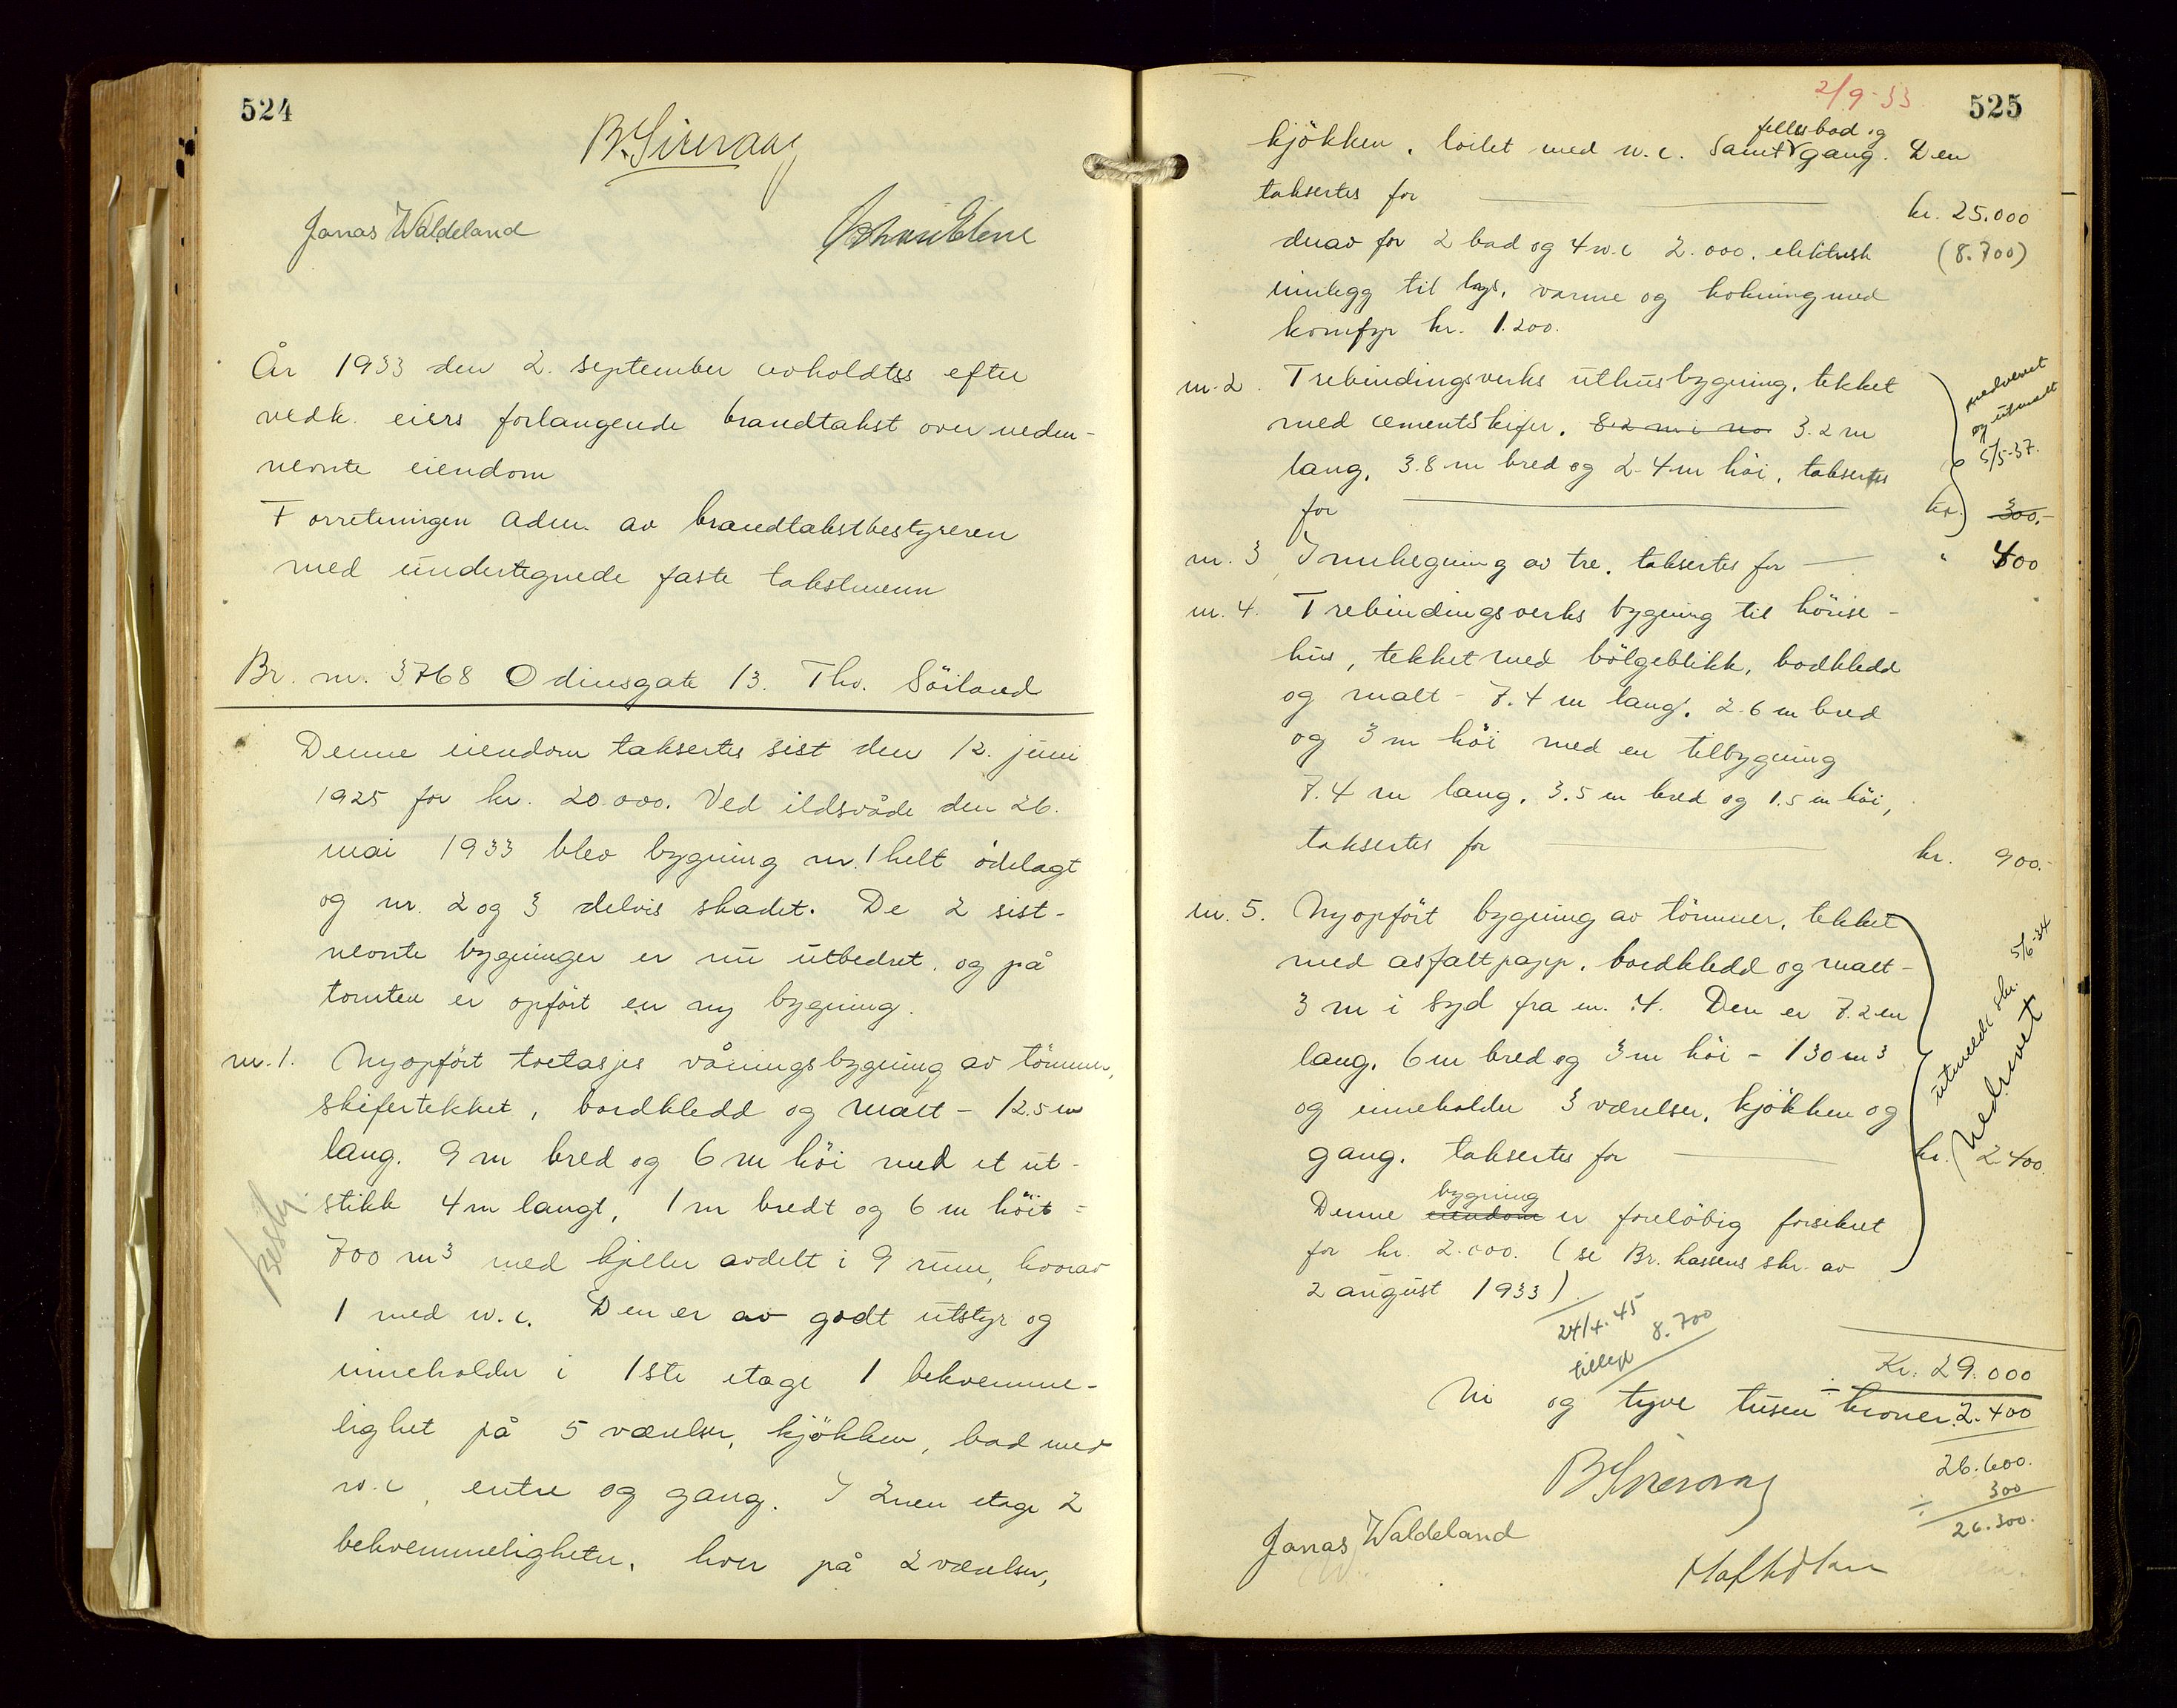 524
B. Sirevaag
Jonas Waldeland
År 1933 den 2. september avholdtes efter
vedk. eiers forlangende brandtakst over neden-
nevnte eiendom
Forretningen adm. av brandtakstbestyreren
med undertegnede faste takstmenn
Br. nr. 3768 Odinsgate 13. Thv. Söiland
Denne eiendom taksertes sist den 12. juni
1925 for kr. 20.000. Ved ildsvåde den 26.
mai 1933 blev bygning nr. 1 helt ödelagt
og nr. 2 og 3 delvis skadet. De 2 sist-
nevnte bygninger er nu utbedret. og på
tomten er opfört en ny bygning.
nr. 1. Nyopfört toetasjes våningsbygning av tömmer,
skifertekket, bordkledd og malt - 12.5 m
lang. 9 m bred og 6 m höi med et ut-
stikk 4 m langt, 1 m bredt og 6 m höit =
700 m³ med kjeller avdelt i 9 rum, hvorav
1 med w.c. Den er av godt utstyr og
inneholder i 1ste etage 1 bekvemme-
lighet på 5 værelser, kjökken, bad med
w.c, entre og gang. I 2nen etage 2
bekvemmeligheter, hver på 2 værelser,
2/9-33
525
fellesbad og
kjökken, toilet med w.c. samt gang. Den
taksertes for kr. 25.000
derav for 2 bad og 4 w.c 2.000. elektrisk (8.700)
innlegg til lys, varme og kokning med
komfyr kr. 1.200.
nr. 2. Trebindingsverks uthusbygning, tekket
med cementskifer. 8.2 m i no. 3.2 m
lang, 3.8 m bred og 2.4 m höi, taksertes
for kr. 300.-
nedrevet
og utmeldt
5/5-37.
nr. 3 Innhegning av tre, taksertes for " 400
nr. 4. Trebindingsverks bygning til hönse-
hus, tekket med bölgeblikk, bordkledd
og malt - 7.4 m lang. 2.6 m bred
og 3 m höi med en tilbygning
7.4 m lang, 3.5 m bred og 1.5 m höi,
taksertes for kr. 900.-
nr. 5. Nyopfört bygning av tömmer, tekket
med asfaltpapp, bordkledd og malt -
3 m i syd fra nr. 4. Den er 7.2 m
lang, 6 m bred og 3 m höi - 130 m³
og inneholder 3 værelser, kjökken og
gang. taksertes for kr. 2400.
utmeldt skr. 5/6-34
nedrevet
bygning
Denne eiendom er forelöbig forsikret
for kr. 2.000. (se Br. kassens skr. av
2 august 1933).
24/4.45
tillegg 8.700
Kr. 29.000
Ni og tyve tusen kroner. ÷ 2.400
26.600.
÷ 300
26.300.
B Sirevaag
Jonas Waldeland